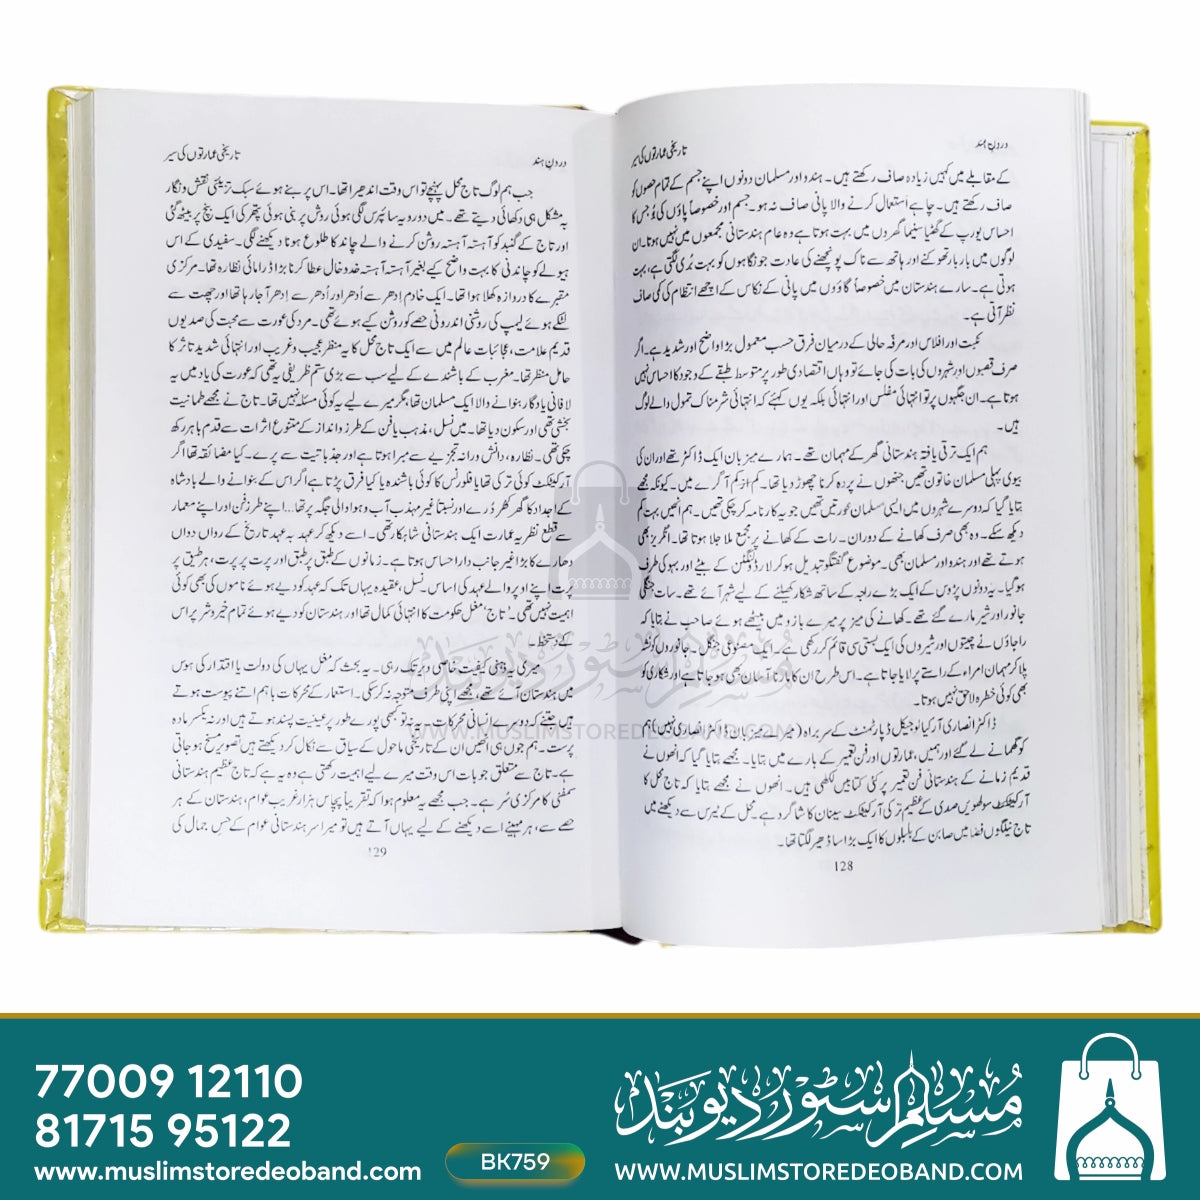 دردنِ ہند
تاریخی عمارتوں کی سیر
کے مقابلے میں کہیں زیادہ صاف رکھتے ہیں۔ ہندو اور مسلمان دونوں اپنے جسم کے تمام حصوں کو
صاف رکھتے ہیں۔ چاہے استعمال کرنے والا پانی صاف نہ ہو۔ جسم اور خصوصاً پاؤں کی بُو جس کا
احساس یورپ کے گھٹیا سنیما گھروں میں بہت ہوتا ہے وہ عام ہندستانی مجمعوں میں نہیں ہوتا۔ ان
لوگوں میں بار بار تھوکنے اور ہاتھ سے ناک پونچھنے کی عادت جو نگاہوں کو بہت بُری لگتی ہے، بہت
ہوتی ہے۔ سارے ہندستان میں خصوصاً گاؤوں میں پانی کے نکاس کے اچھے انتظام کی کمی صاف
نظر آتی ہے۔
نکبت اور افلاس اور مرفہ حالی کے درمیان فرق حسب معمول بڑا واضح اور شدید ہے۔ اگر
صرف قصبوں اور شہروں کی بات کی جائے تو وہاں اقتصادی طور پر متوسط طبقے کے وجود کا احساس نہیں
ہوتا ہے۔ ان جگہوں پر تو انتہائی مفلس اور انتہائی بلکہ یوں کہئے کہ انتہائی شرمناک تمول والے لوگ
ہیں۔
ہم ایک ترقی یافتہ ہندستانی گھر کے مہمان تھے۔ ہمارے میزبان ایک ڈاکٹر تھے اور ان کی
بیوی پہلی مسلمان خاتون تھیں جنھوں نے پردہ کرنا چھوڑ دیا تھا۔ کم از کم آگرے میں۔ کیونکہ مجھے
بتایا گیا کہ دوسرے شہروں میں ایسی مسلمان عورتیں تھیں جو یہ کارنامہ کر چکی تھیں۔ ہم انھیں بہت کم
دیکھ سکے۔ وہ بھی صرف کھانے کے دوران۔ رات کے کھانے پر مجمع ملا جلا ہوتا تھا۔ انگریز بھی
ہوتے تھے اور ہندو اور مسلمان بھی۔ موضوع گفتگو تبدیل ہو کر لارڈ ولنگٹن کے بیٹے اور بہو کی طرف
ہو گیا۔ یہ دونوں پڑوس کے ایک بڑے راجہ کے ساتھ شکار کھیلنے کے لیے شہر آئے تھے۔ سات جنگلی
جانور اور شیر مارے گئے تھے۔ کھانے کی میز پر میرے بازو میں بیٹھے ہوئے صاحب نے بتایا کہ
راجاؤں نے چیتوں اور شیروں کی ایک بستی سی قائم کر رکھی ہے۔ ایک مصنوعی جنگل۔ جانوروں کو نشہ
پلا کر مہمان امراء کے راستے پر لایا جاتا ہے۔ اس طرح ان کا مارنا آسان بھی ہو جاتا ہے اور شکاری کو
بھی کوئی خطرہ لاحق نہیں ہوتا۔
ڈاکٹر انصاری آرکیالوجیکل ڈپارٹمنٹ کے سربراہ (میرے میزبان ڈاکٹر انصاری نہیں) ہم
کو گھمانے لے گئے اور ہمیں، عمارتوں اور فن تعمیر کے بارے میں بتایا۔ مجھے بتایا گیا کہ انھوں نے
قدیم زمانے کے ہندستانی فن تعمیر پر کئی کتابیں لکھی ہیں۔ انھوں نے مجھے بتایا کہ تاج محل کا
آرکیٹکٹ سولھویں صدی کے عظیم ترکی آرکیٹکٹ سینان کا شاگرد ہے۔ محل کے ٹیرس سے دیکھنے میں
تاج نیلگوں فضا میں صابن کے بلبلوں کا ایک بڑا سا ڈھیر لگتا تھا۔
128
دردنِ ہند
تاریخی عمارتوں کی سیر
جب ہم لوگ تاج محل پہنچے تو اس وقت اندھیرا تھا۔ اس پر بنے ہوئے سبک تزئینی نقش و نگار
بہ مشکل ہی دکھائی دیتے تھے۔ میں دورویہ سائپرس لگی ہوئی روش پر بنی ہوئی پتھر کی ایک بنچ پر بیٹھ گئی
اور تاج کے گنبد کو آہستہ آہستہ روشن کرنے والے چاند کا طلوع ہونا دیکھنے لگی۔ سفیدی کے اس
ہیولے کو چاندنی کا بہت واضح کیے بغیر آہستہ آہستہ خدوخال عطا کرنا بڑا ڈرامائی نظارہ تھا۔ مرکزی
مقبرے کا دروازہ کھلا ہوا تھا۔ ایک خادم ادھر سے اُدھر اور اُدھر سے ادھر آ جا رہا تھا اور چھت سے
لٹکے ہوئے لیمپ کی روشنی اندرونی حصے کو روشن کیے ہوئے تھی۔ مرد کی عورت سے محبت کی صدیوں
قدیم علامت، عجائبات عالم میں سے ایک تاج محل کا یہ منظر عجیب و غریب اور انتہائی شدید تاثر کا
حامل منظر تھا۔ مغرب کے باشندے کے لیے سب سے بڑی ستم ظریفی یہ تھی کہ عورت کی یاد میں یہ
لافانی یادگار بنوانے والا ایک مسلمان تھا، مگر میرے لیے یہ کوئی مسئلہ نہیں تھا۔ تاج نے مجھے طمانیت
بخشی تھی اور سکون دیا تھا۔ میں نسل، مذہب یا فن کے طرز و انداز کے متنوع اثرات سے قدم باہر رکھ
چکی تھی۔ نظارہ، دانش ورانہ تجزیے سے مبرا ہوتا ہے اور جذباتیت سے پرے۔ کیا مضائقہ تھا اگر
آرکیٹکٹ کوئی ترکی تھا یا فلورنس کا کوئی باشندہ یا کیا فرق پڑتا ہے اگر اس کے بنوانے والے بادشاہ
کے اجداد کا گھر کھر درے اور نسبتاً غیر مہذب آب و ہوا والی جگہ پر تھا... اپنے طرز فن اور اپنے معمار
سے قطع نظر یہ عمارت ایک ہندستانی شاہکار تھی۔ اسے دیکھ کر عہد بہ عہد تاریخ کے رواں دواں
دھارے کا بڑا غیر جانب دار احساس ہوتا ہے۔ زمانوں کے طبق بر طبق اور پرت پر پرت، ہر طبق پر
پرت اپنے اوپر والے عہد کی اساس۔ نسل، عقیدہ یہاں تک کہ عہد کو دیے ہوئے ناموں کی بھی کوئی
اہمیت نہیں تھی۔ ’تاج‘ مغل حکومت کا انتہائی کمال تھا اور ہندستان کو دیے ہوئے تمام خیر و شر پر اس
کے دستخط۔
میری یہ ذہنی کیفیت خاصی دیر تک رہی۔ یہ بحث کہ مغل یہاں کی دولت یا اقتدار کی ہوس
میں ہندستان آئے تھے، مجھے اپنی طرف متوجہ نہ کر سکی۔ استعمار کے محرکات باہم اتنے پیوست ہوتے
ہیں جتنے کہ دوسرے انسانی محرکات۔ یہ نہ تو کبھی پورے طور پر عینیت پسند ہوتے ہیں اور نہ یکسر مادہ
پرست۔ ہم جوں ہی انھیں ان کے تاریخی ماحول کے سیاق سے نکال کر دیکھتے ہیں تصویر مسخ ہو جاتی
ہے۔ تاج سے متعلق جو بات اس وقت میرے لیے اہمیت رکھتی ہے وہ یہ ہے کہ تاج عظیم ہندستانی
سمفنی کا مرکزی سُر ہے۔ جب مجھے یہ معلوم ہوا کہ تقریباً پچاس ہزار غریب عوام، ہندستان کے ہر
حصے سے، ہر مہینے اسے دیکھنے کے لیے یہاں آتے ہیں تو میرا سر ہندستانی عوام کے حس جمال کی
129
مسلم سٹور دیوبند
WWW.MUSLIMSTOREDEOBAND.COM
77009 12110
81715 95122
www.muslimstoredeoband.com
BK759
مسلم سٹور دیوبند
WWW.MUSLIMSTOREDEOBAND.COM